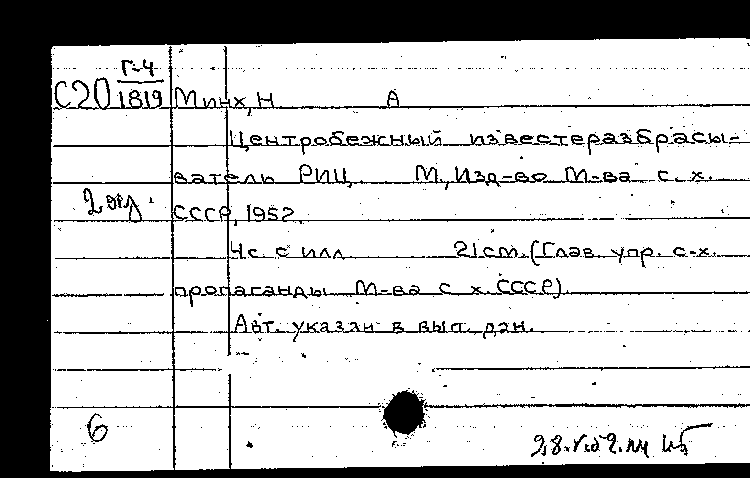 Г-4
С20 1819 Минх, Н. А
Центробежный известеразбрасы-
ватель РИЦ. М., Изд-во М-ва с. х.
2 экз.
СССР, 1952.
4с. с илл. 21см. (Глав. упр. с-х.
пропаганды М-ва с х. СССР).
Авт. указан в вып. дан.
6